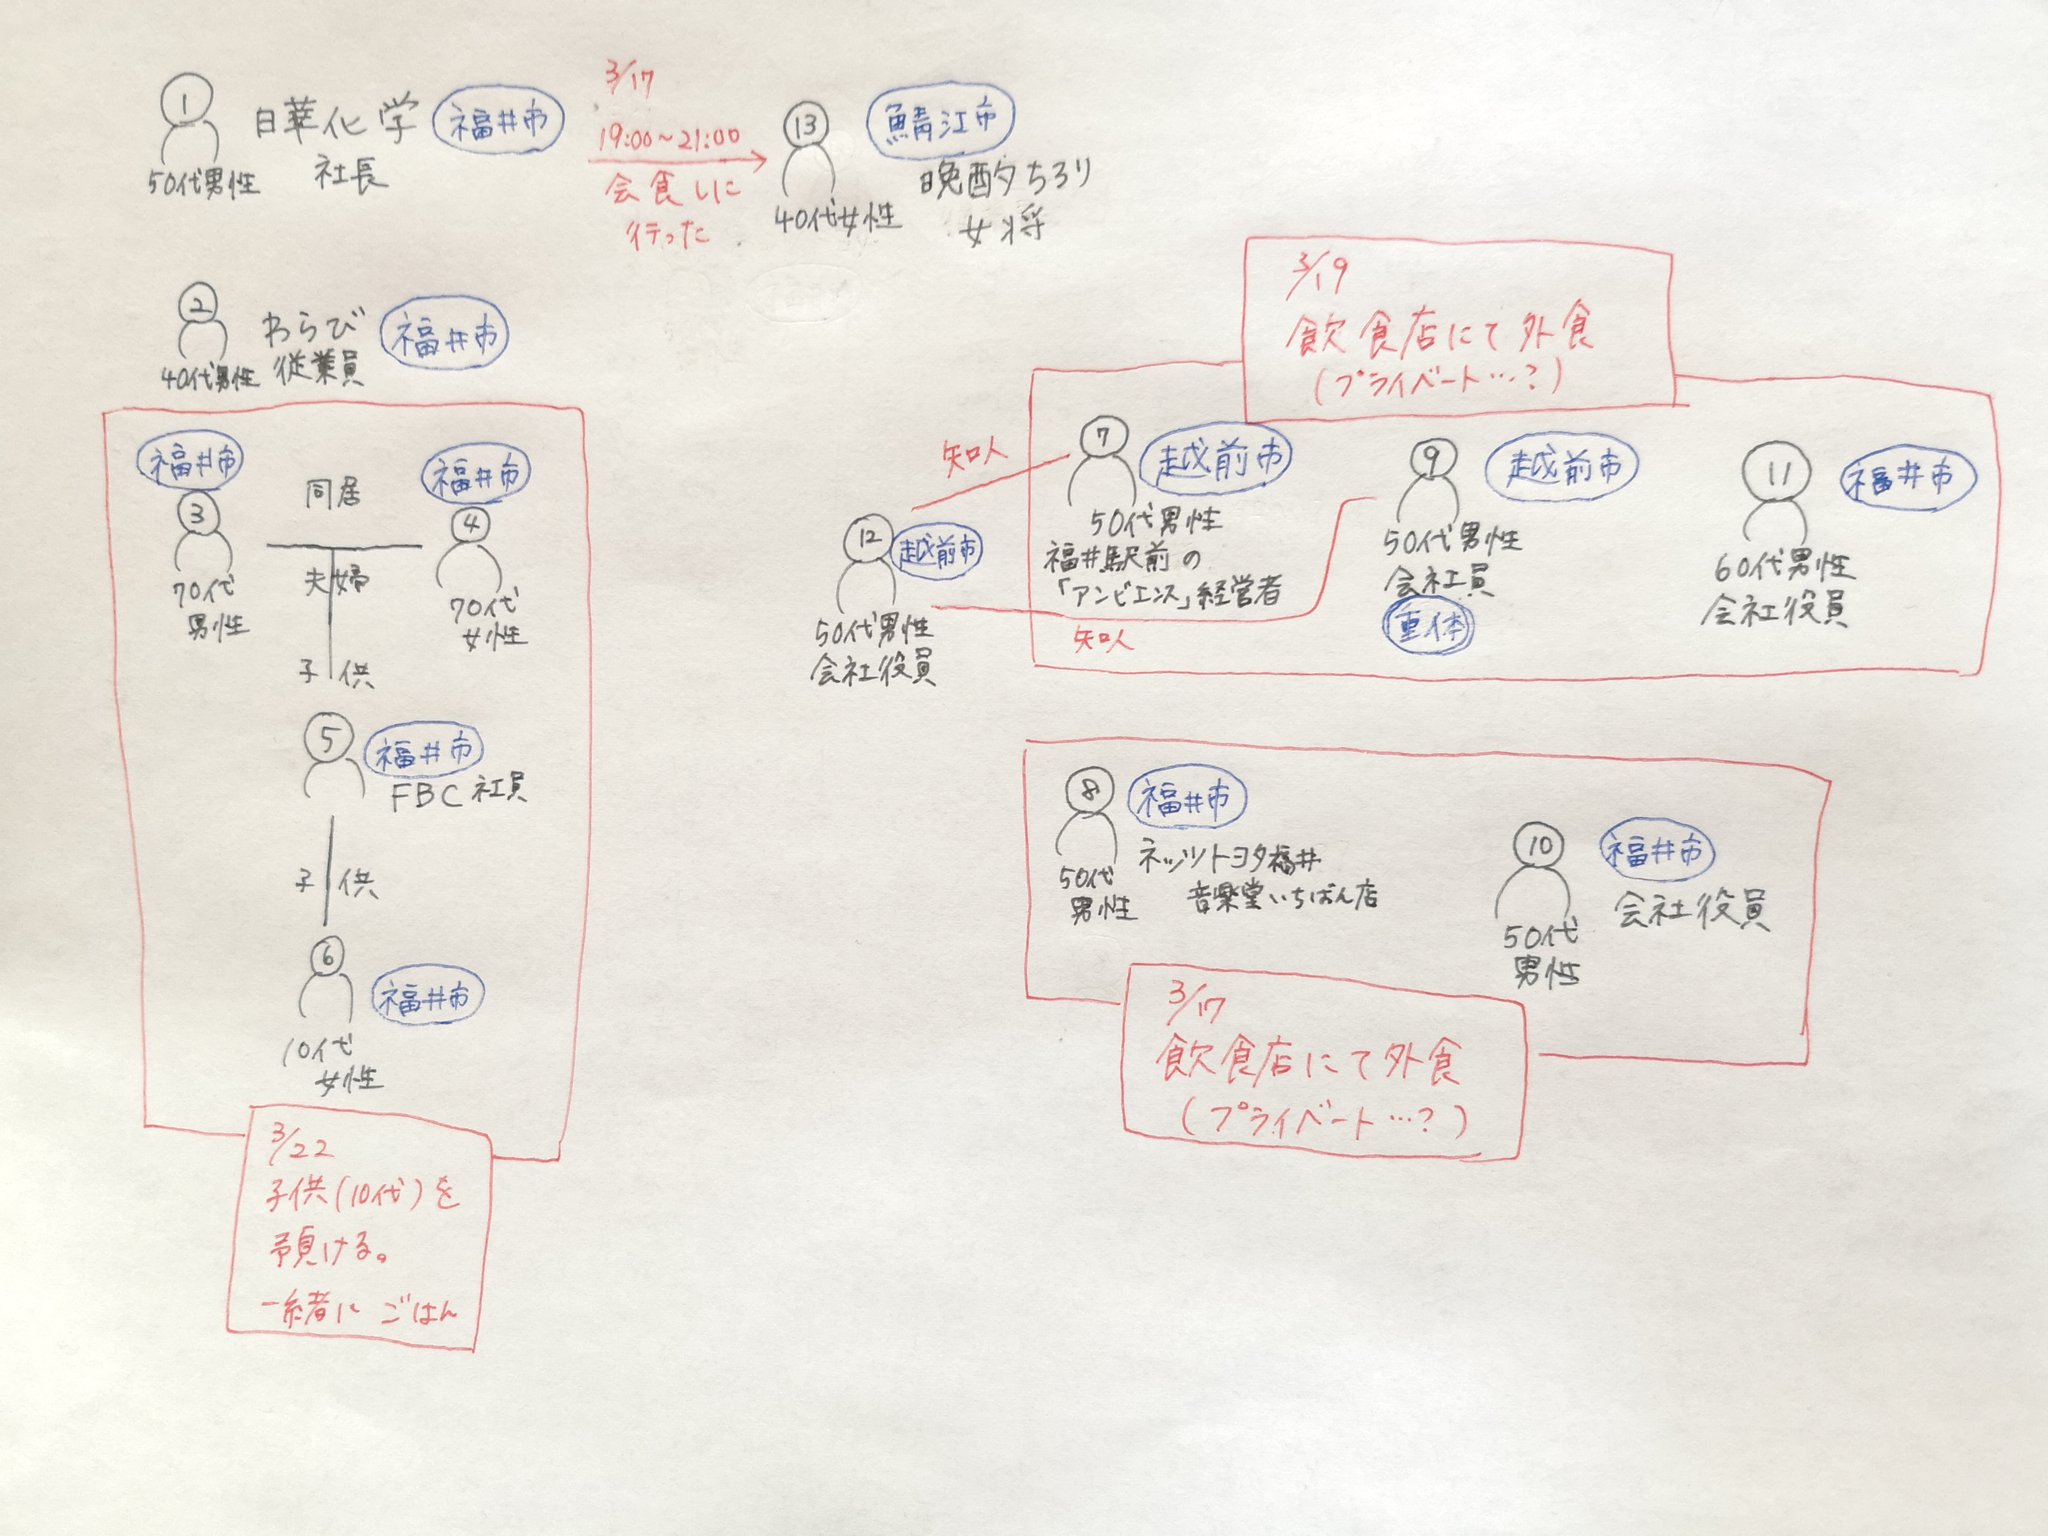 1
日華化学
社長
50代男性
福井市
3/17
19:00~21:00
会食しに
行った
13
40代女性
鯖江市
晩酌ちろり
女将
2
40代男性
わらび
従業員
福井市
福井市
3
70代
男性
同居
夫婦
福井市
4
70代
女性
子供
5
福井市
FBC社員
子供
6
福井市
10代
女性
3/22
子供(10代)を
預ける。
一緒にごはん
3/19
飲食店にて外食
(プライベート…?)
知人
7
越前市
50代男性
福井駅前の
「アンビエンス」経営者
9
越前市
50代男性
会社員
重体
11
福井市
60代男性
会社役員
12
越前市
50代男性
会社役員
知人
8
福井市
50代
男性
ネッツトヨタ福井
音楽堂いちばん店
10
福井市
会社役員
50代
男性
3/17
飲食店にて外食
(プライベート…?)